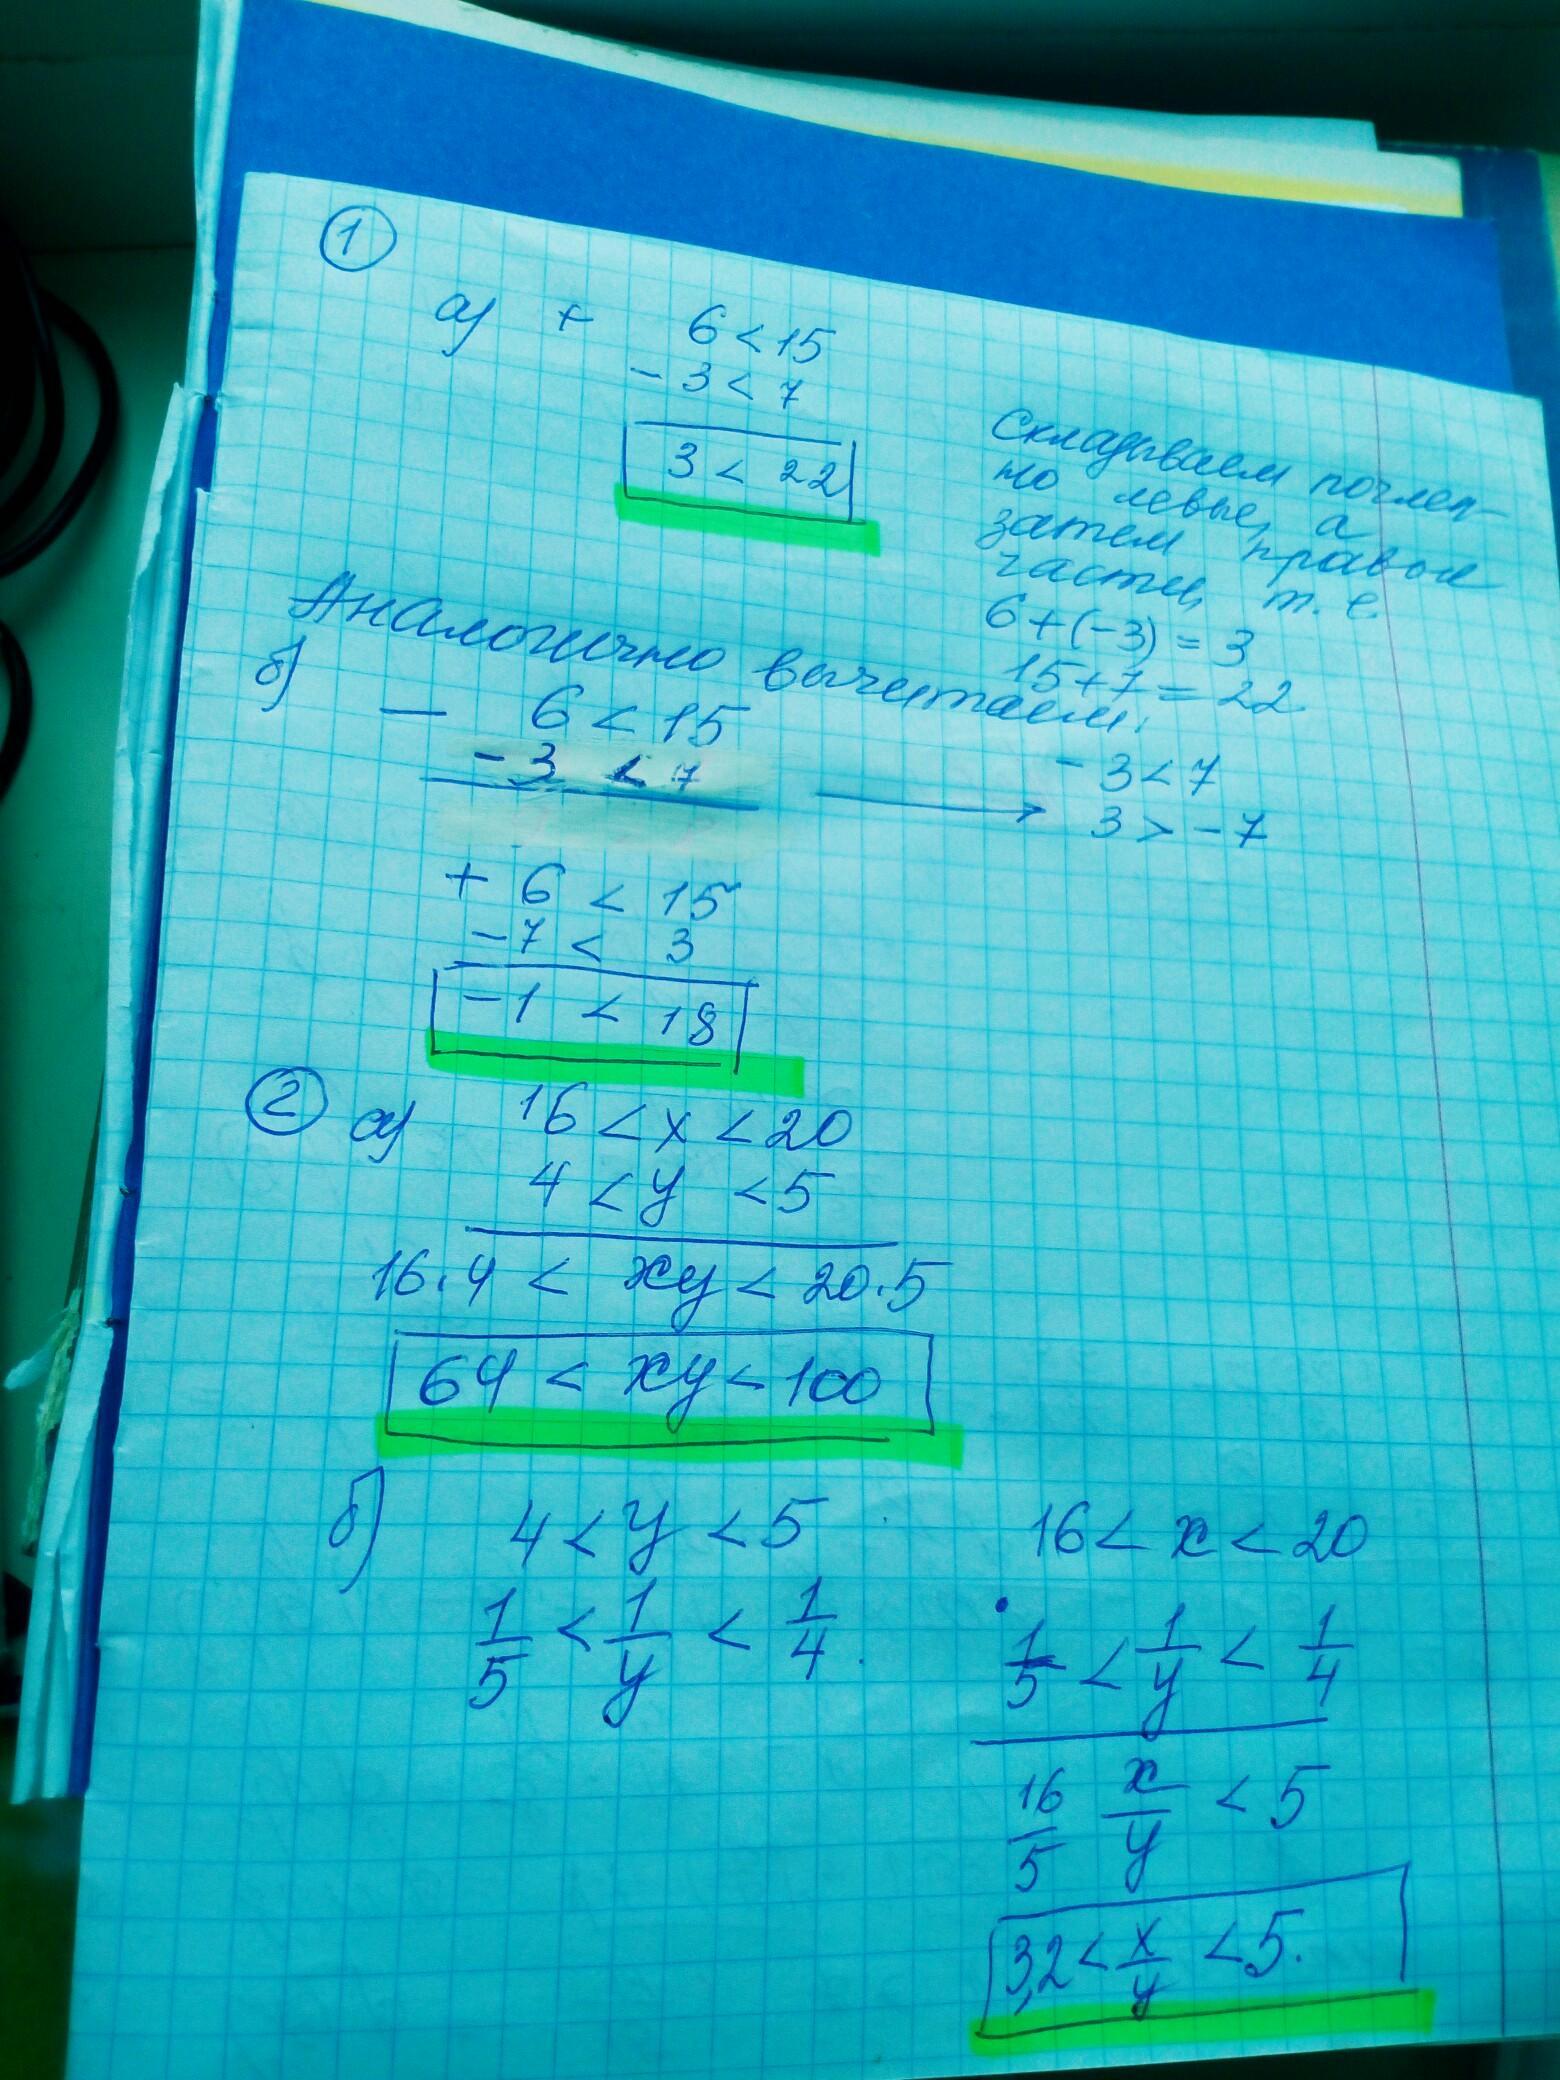 1
а) + 6 < 15
- 3 < 7
3 < 22
Складываем почлен-
но левые, а
затем правые
части, т. е.
6 + (-3) = 3
15 + 7 = 22
Аналогично вычитаем:
б) — 6 < 15
- 3 < 7
- 3 < 7
3 > -7
+ 6 < 15
- 7 < 3
-1 < 18
2 а) 16 < x < 20
4 < y < 5
16·4 < xy < 20·5
64 < xy < 100
б) 4 < y < 5
1/5 < 1/y < 1/4
16 < x < 20
· 1/5 < 1/y < 1/4
16/5 x/y < 5
3,2 < x/y < 5.